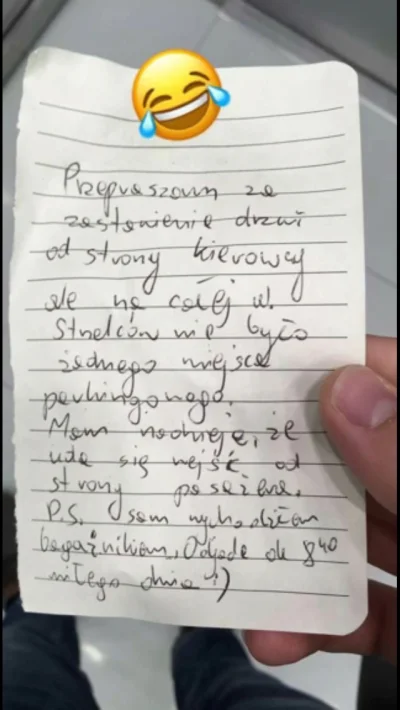 Przepraszam za
zastawienie drzwi
od strony kierowcy
ale na całej ul.
Strzelców nie było
żadnego miejsca
parkingowego.
Mam nadzieję, że
uda się wejść od
strony pasażera.
P.S. sam wychodziłem
bagażnikiem, Odjadę ok 8⁴⁰
miłego dnia :)